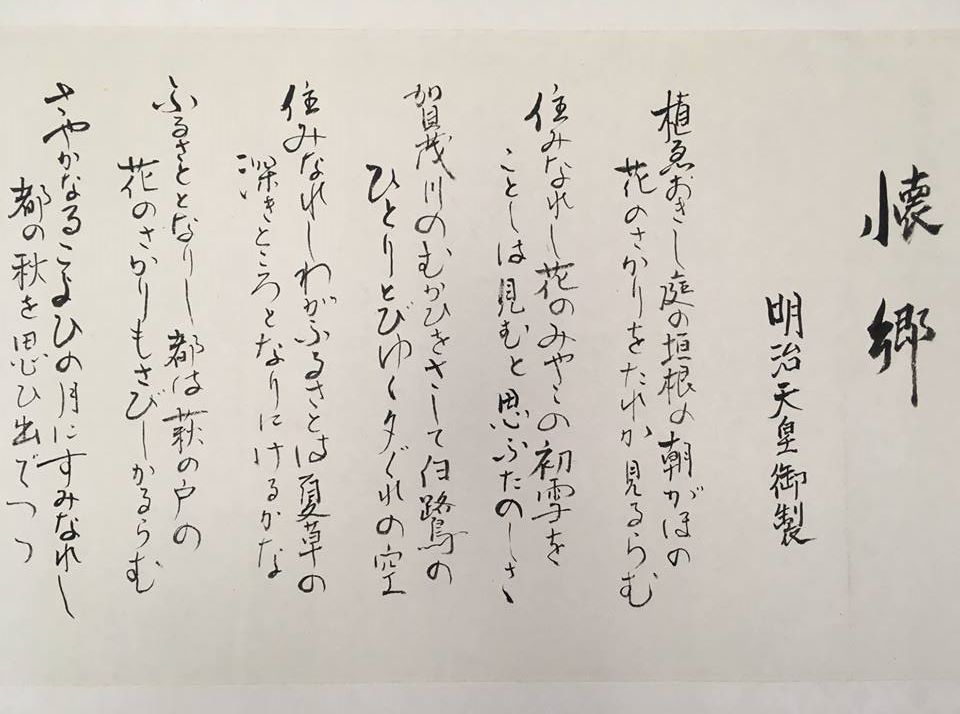 懐郷
明治天皇御製
植ゑおきし庭の垣根の朝がほの
花のさかりをたれか見るらむ
住みなれし花のみやこの初雪を
ことしは見むと思ふたのしさ
賀茂川のむかひをさして白鷺の
ひとりとびゆく夕ぐれの空
住みなれしわがふるさとは夏草の
深きところとなりにけるかな
ふるさととなりし都は萩の戸の
花のさかりもさびしかるらむ
さやかなるこよひの月にすみなれし
都の秋を思ひ出でつつ